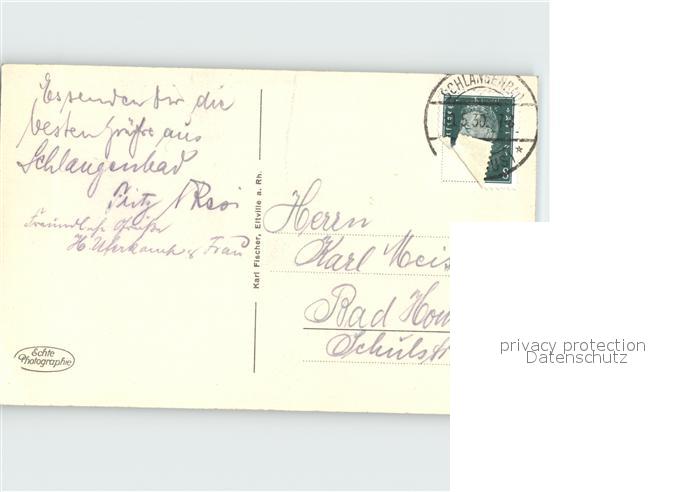 Es senden dir die
besten Grüße aus
Schlangenbad
Fritz
Freundliche Grüße
H. u. Frau
Echte
Photographie
Karl Fischer, Eltville a. Rh.
SCHLANGENBAD
30
8
Herrn
Karl Meis
Bad Hom
Schulst
privacy protection
Datenschutz